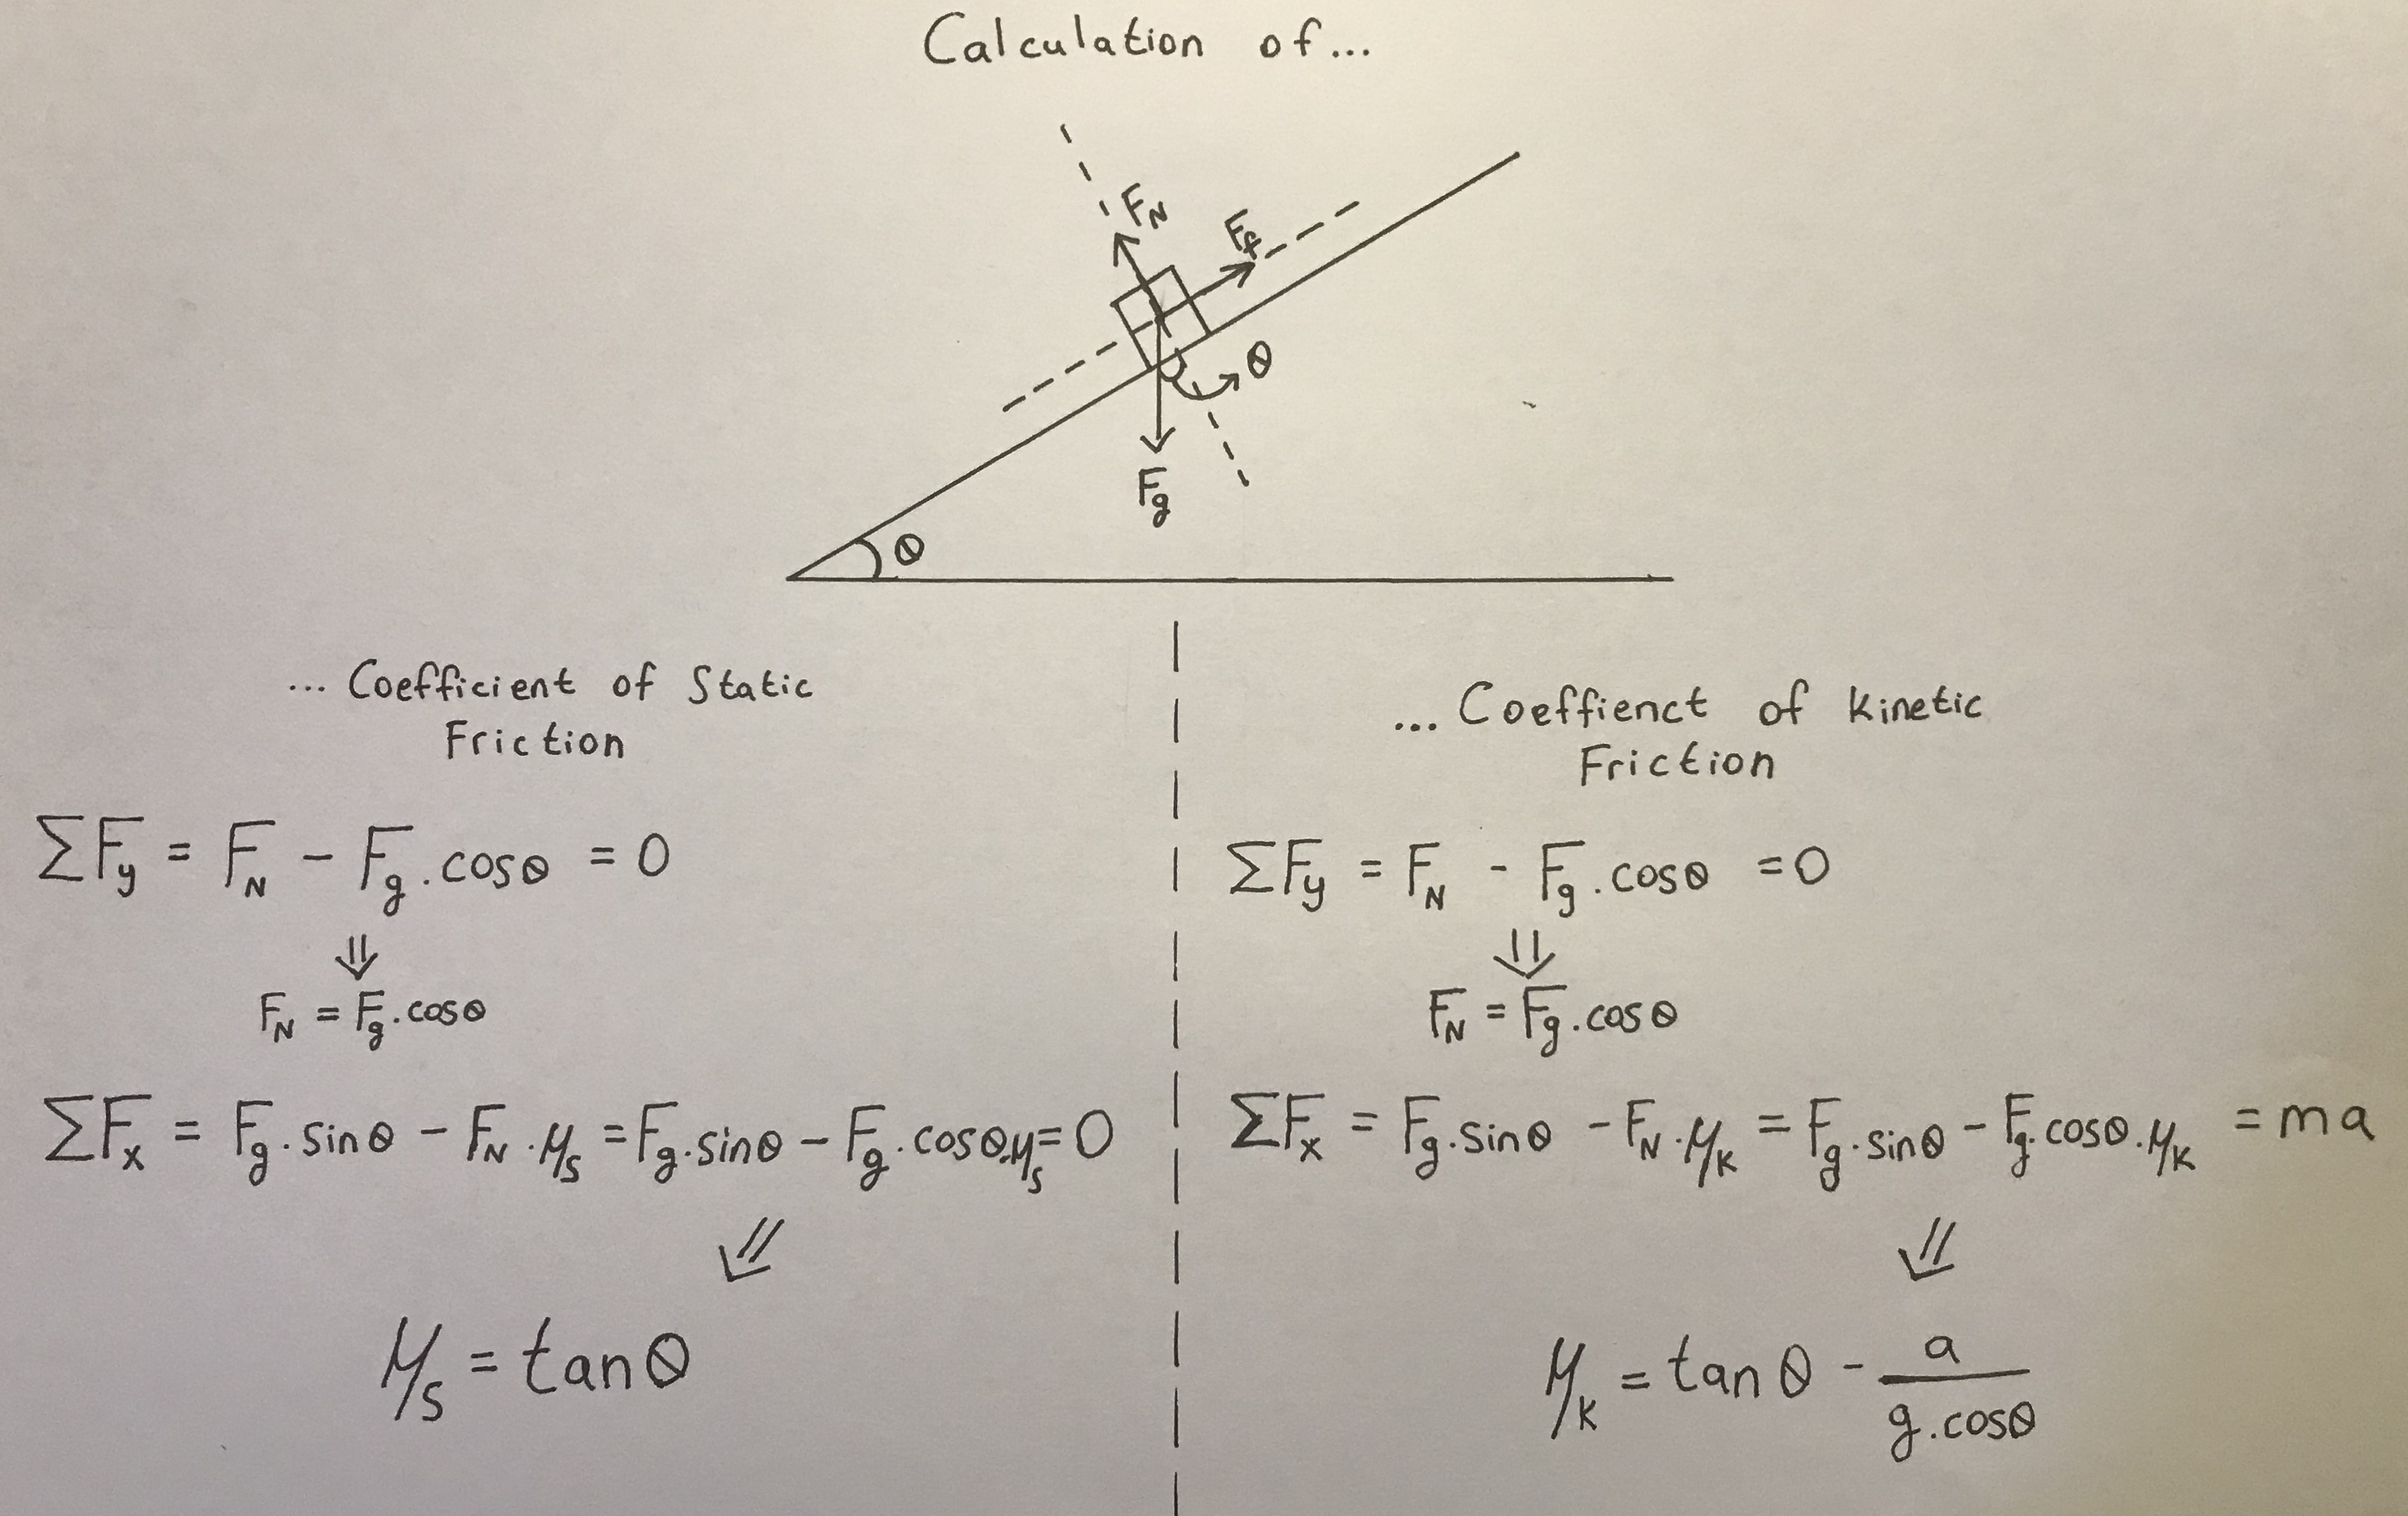 Calculation of...
F_N
F_f
θ
F_g
θ
... Coefficient of Static
Friction
ΣF_y = F_N − F_g . cosθ = 0
⇓
F_N = F_g . cosθ
ΣF_x = F_g . sinθ − F_N . μ_s = F_g . sinθ − F_g . cosθ . μ_s = 0
⇙
μ_s = tanθ
... Coeffienct of kinetic
Friction
ΣF_y = F_N - F_g . cosθ = 0
⇓
F_N = F_g . cosθ
ΣF_x = F_g . sinθ - F_N . μ_k = F_g . sinθ - F_g . cosθ . μ_k = ma
⇙
μ_k = tanθ - a / g . cosθ